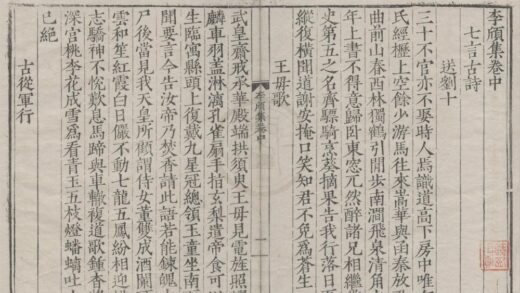 李頎集卷中
七言古詩
送劉十
三十不官亦不娶時人焉識道高下房中唯
氏經櫪上空餘少游馬往來嵩華與函秦放
曲前山春西林獨鶴引閒步南澗飛泉清角
年上書不得意歸臥東窓兀然醉諸兄相繼
史第五之名齊驃騎烹葵摘果告我行落日
縱復橫聞道謝安掩口笑知君不免爲蒼生
王母歌
李頎集卷中
一
武皇齋戒承華殿端拱須臾王母見霓旌照
麟車羽蓋淋漓孔雀扇手指玄梨遣帝食可
生臨寓縣頭上復戴九星冠總領玉童坐南
聞要言今告汝帝乃焚香請此語若能鍊魄
尸後當見我天皇所顧謂侍女董雙成酒闌
雲和笙紅霞白日儼不動七龍五鳳紛相迎
志驕神不悅歎息馬蹄與車轍複道歌鐘杳
深宮桃李花成雪爲看青玉五枝燈蟠螭吐
已絕
古從軍行